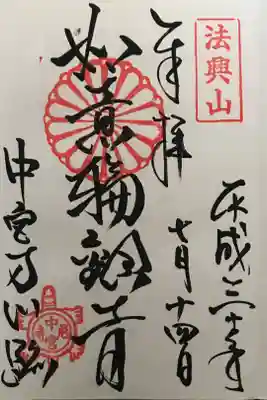 法興山
奉拝
平成三十年
七月十四日
如意輪観音
中宮寺門跡